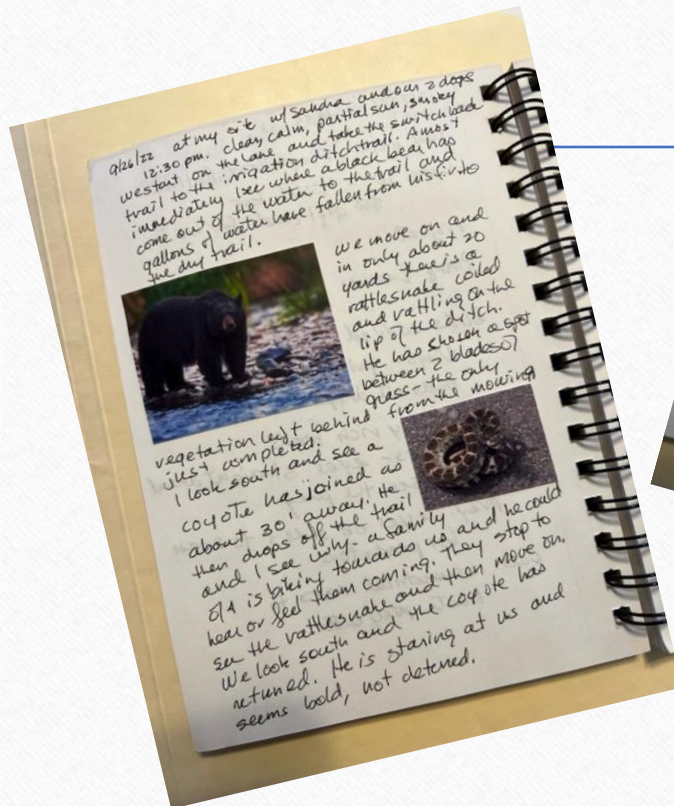 9/26/22 at my site w/ Sandra and our 2 dogs
12:30 pm. clear, calm, partial sun, smoky
we start on the lane and take the switchback
trail to the irrigation ditch trail. Almost
immediately I see where a black bear has
come out of the water to the trail and
gallons of water have fallen from his fur to
the dry trail.
we move on and
in only about 20
yards there is a
rattlesnake coiled
and rattling on the
lip of the ditch.
He has chosen a spot
between 2 blades of
grass - the only
vegetation left behind from the mowing
just completed.
I look south and see a
coyote has joined us
about 30' away. He
then drops off the trail
and I see why. a family
of 4 is biking towards us and he could
hear or feel them coming. They stop to
see the rattlesnake and then move on.
We look south and the coyote has
returned. He is staring at us and
seems bold, not deterred.